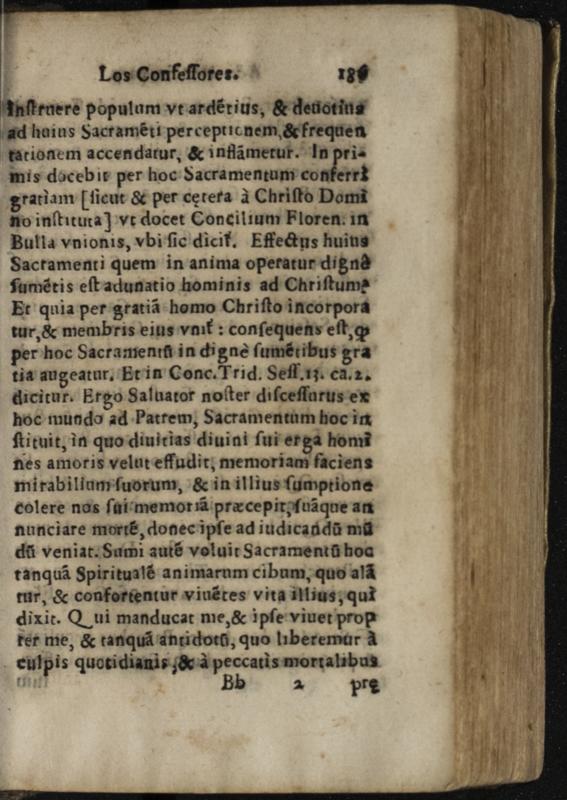 Los Confessores. 186
Instruere populum vt ardẽtius, & deuotius
ad huius Sacramẽti perceptionem, & frequen
tationem accendatur, & inflãmetur. In pri-
mis docebit per hoc Sacramentum conferri
gratiam [sicut & per cętera à Christo Domi
no instituta] vt docet Concilium Floren. in
Bulla vnionis, vbi sic dicit̃. Effectus huius
Sacramenti quem in anima operatur dignè
sumẽtis est adunatio hominis ad Christum.
Et quia per gratiã homo Christo incorpora
tur, & membris eius vnit̃ : consequens est, ꝙ
per hoc Sacramentũ in dignè sumẽtibus gra
tia augeatur. Et in Conc. Trid. Sess. 13. ca. 2.
dicitur. Ergo Saluator noster discessurus ex
hoc mundo ad Patrem, Sacramentum hoc in
stituit, in quo diuitias diuini sui erga homi
nes amoris velut effudit, memoriam faciens
mirabilium suorum, & in illius sumptione
colere nos sui memoriã præcepit, suãque an
nunciare mortẽ, donec ipse ad iudicandũ mũ
dũ veniat. Sumi autẽ voluit Sacramentũ hoc
tanquã Spiritualẽ animarum cibum, quo alã
tur, & confortentur viuẽtes vita illius, qui
dixit. Qui manducat me, & ipse viuet prop
ter me, & tanquã antidotũ, quo liberemur à
culpis quotidianis, & à peccatis mortalibus
Bb 2 prę